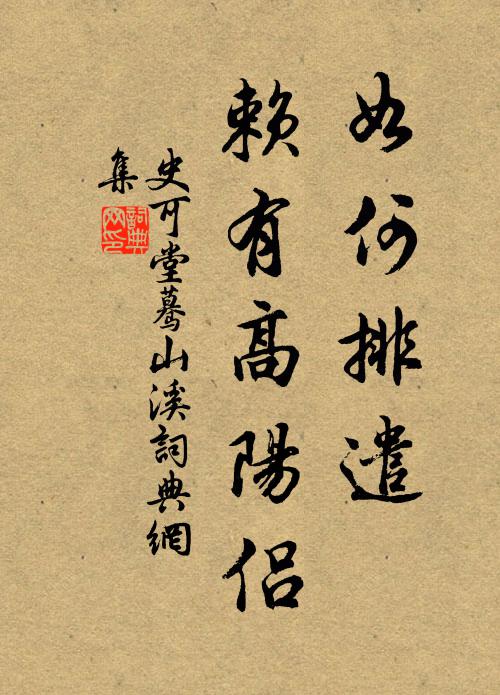 如何排遣
賴有高陽侶
史可堂驀山溪詞典網
集
詞典
网印